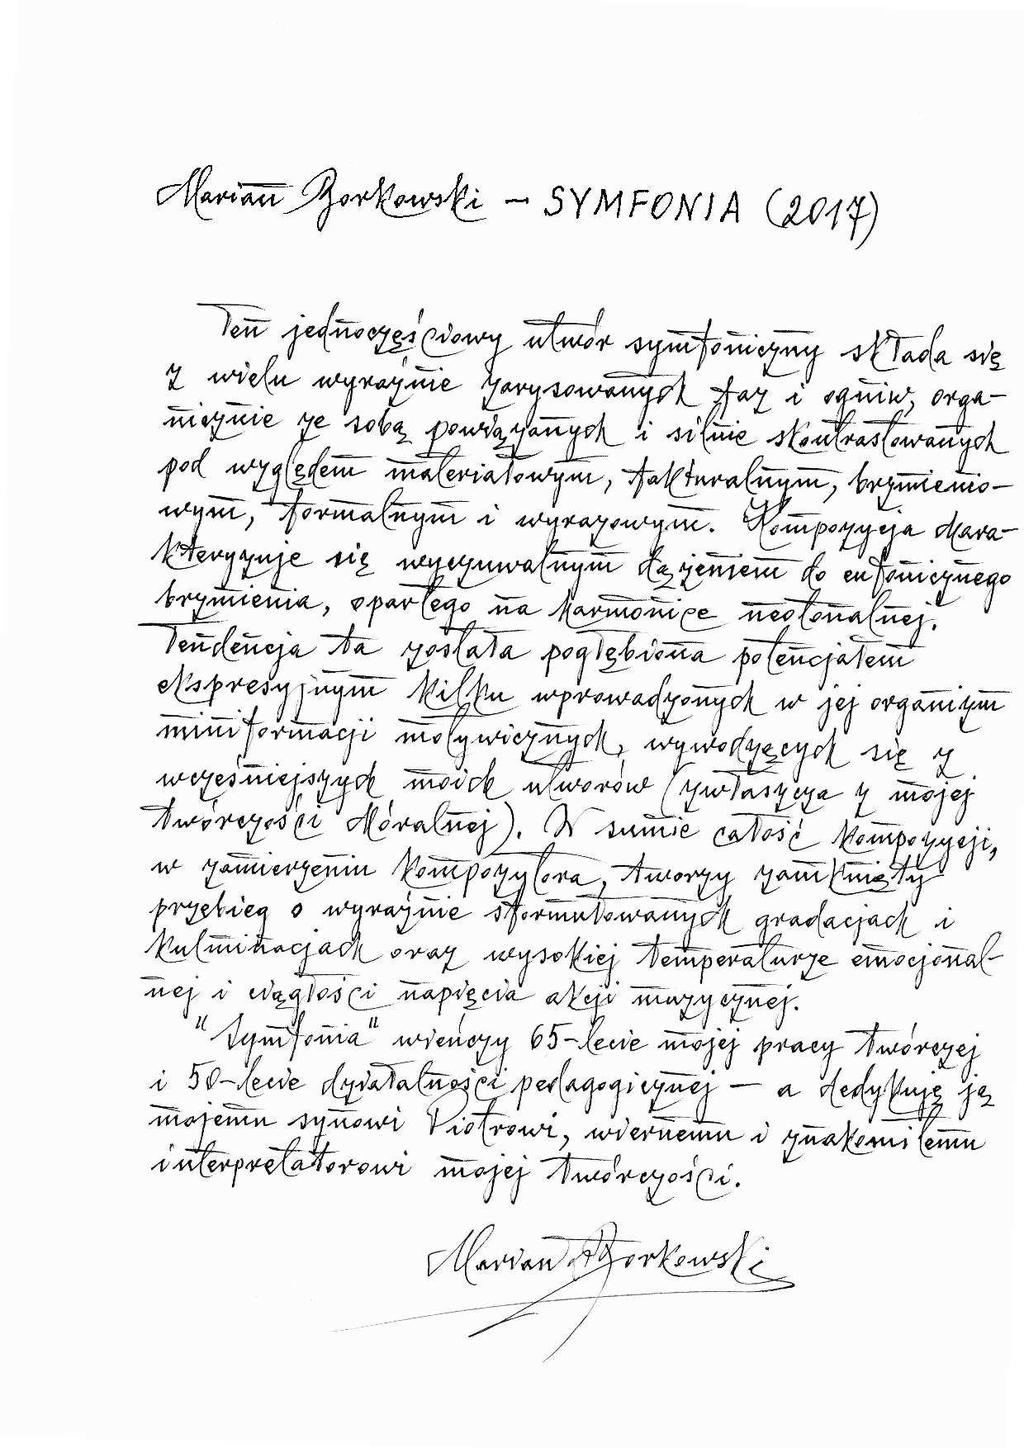 Marian Borkowski – SYMFONIA (2017)
Ten jednoczęściowy utwór symfoniczny składa się
z wielu wyraźnie zarysowanych faz i ogniw, orga-
nicznie ze sobą powiązanych i silnie skontrastowanych
pod względem materiałowym, fakturalnym, brzmienio-
wym, formalnym i wyrazowym. Kompozycja chara-
kteryzuje się wyczuwalnym dążeniem do eufonicznego
brzmienia, opartego na harmonice neotonalnej.
Tendencja ta została pogłębiona potencjałem
ekspresyjnym kilku wprowadzonych w jej organizm
miniformacji motywicznych, wywodzących się z
wcześniejszych moich utworów (zwłaszcza z mojej
twórczości chóralnej). W sumie całość kompozycji,
w zamierzeniu kompozytora, tworzy zamknięty
przebieg o wyraźnie sformułowanych gradacjach i
kulminacjach oraz wysokiej temperaturze emocjonal-
nej i ciągłości napięcia akcji muzycznej.
"Symfonia" wieńczy 65-lecie mojej pracy twórczej
i 50-lecie działalności pedagogicznej – a dedykuję ją
mojemu synowi Piotrowi, wiernemu i znakomitemu
interpretatorowi mojej twórczości.
Marian Borkowski